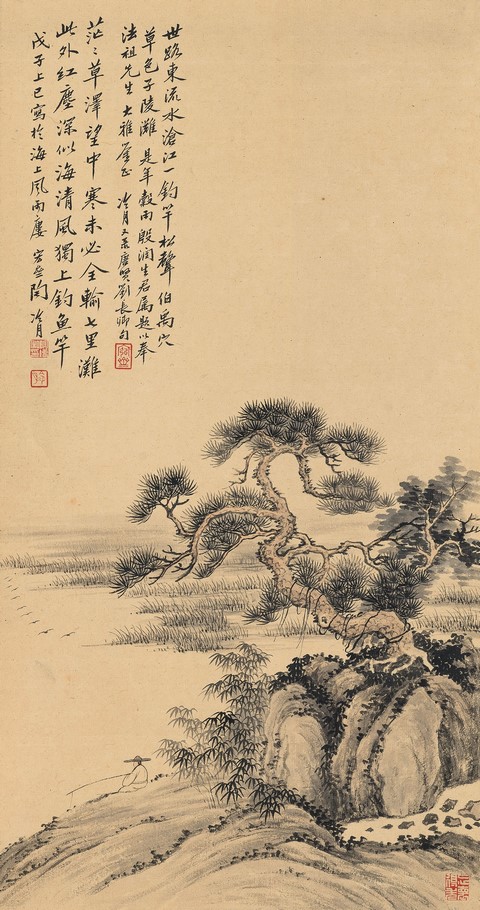 世路東流水滄江一釣竿松聲伯禹穴
草色子陵灘 是年穀雨殷潤生君屬題以奉
法祖先生大雅正 冷月又唐賢劉長卿句
茫〻草澤望中寒未必全輸七里灘
此外紅塵深似海清風獨上釣魚竿
戊子上巳寫於海上風雨廔 陶冷月